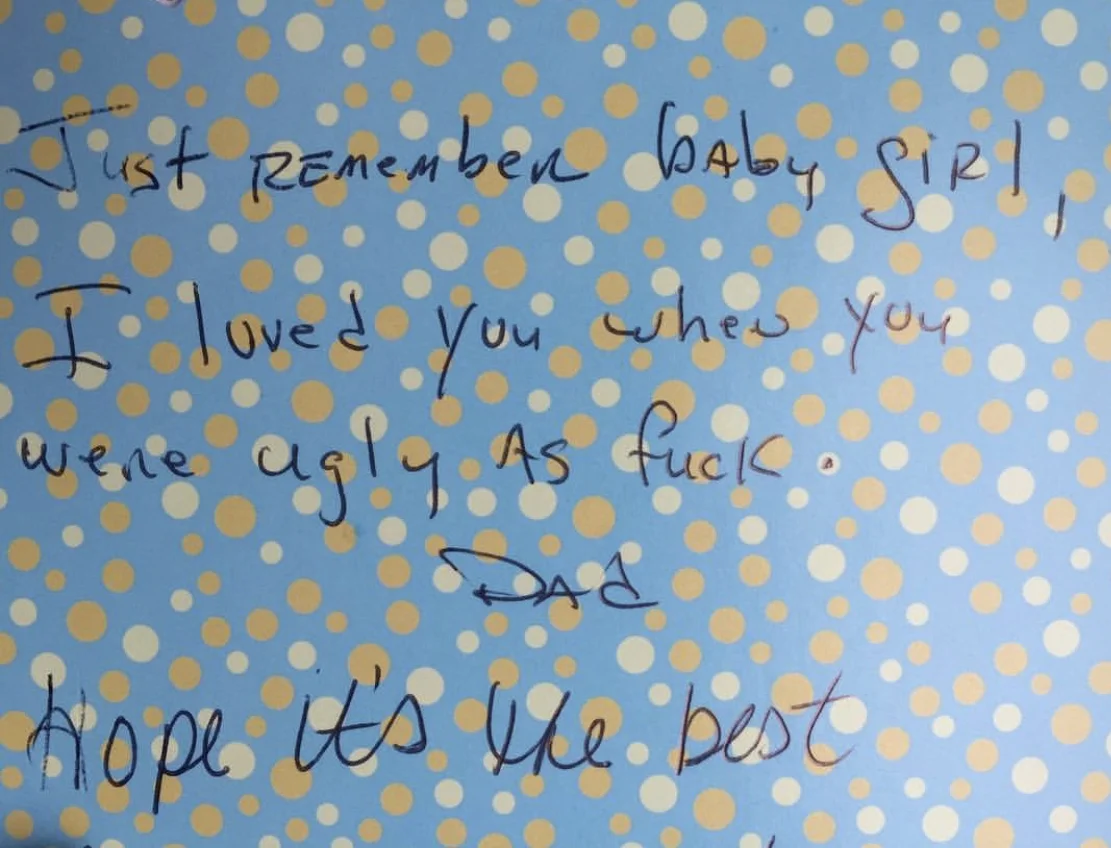 Just REmember bAby giRl,
I loved you when you
were ugly As fuck.
DAd
Hope it's the best